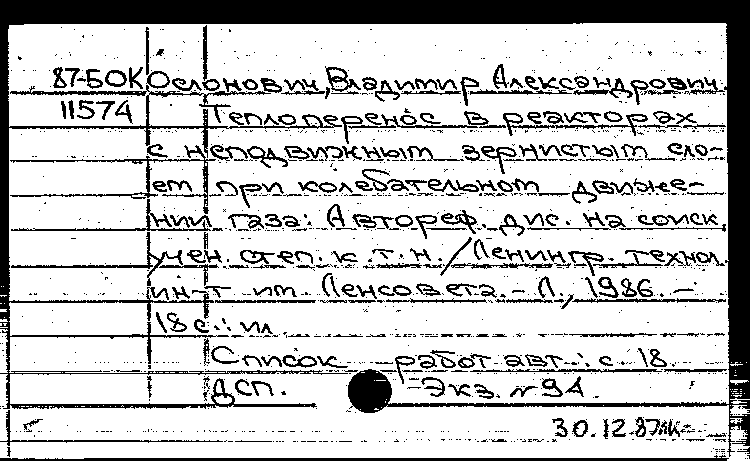 87-БОК Ослонович, Владимир Александрович.
11574 Теплоперенос в реакторах
с неподвижным зернистым сло-
ем при колебательном движе-
нии газа: Автореф. дис. на соиск.
учен. степ. к.т.н. / Ленингр. технол.
ин-т им. Ленсовета. - Л., 1986. -
18 с.: ил.
Список работ авт.: с. 18.
ДСП. Экз. № 94.
30.12.87